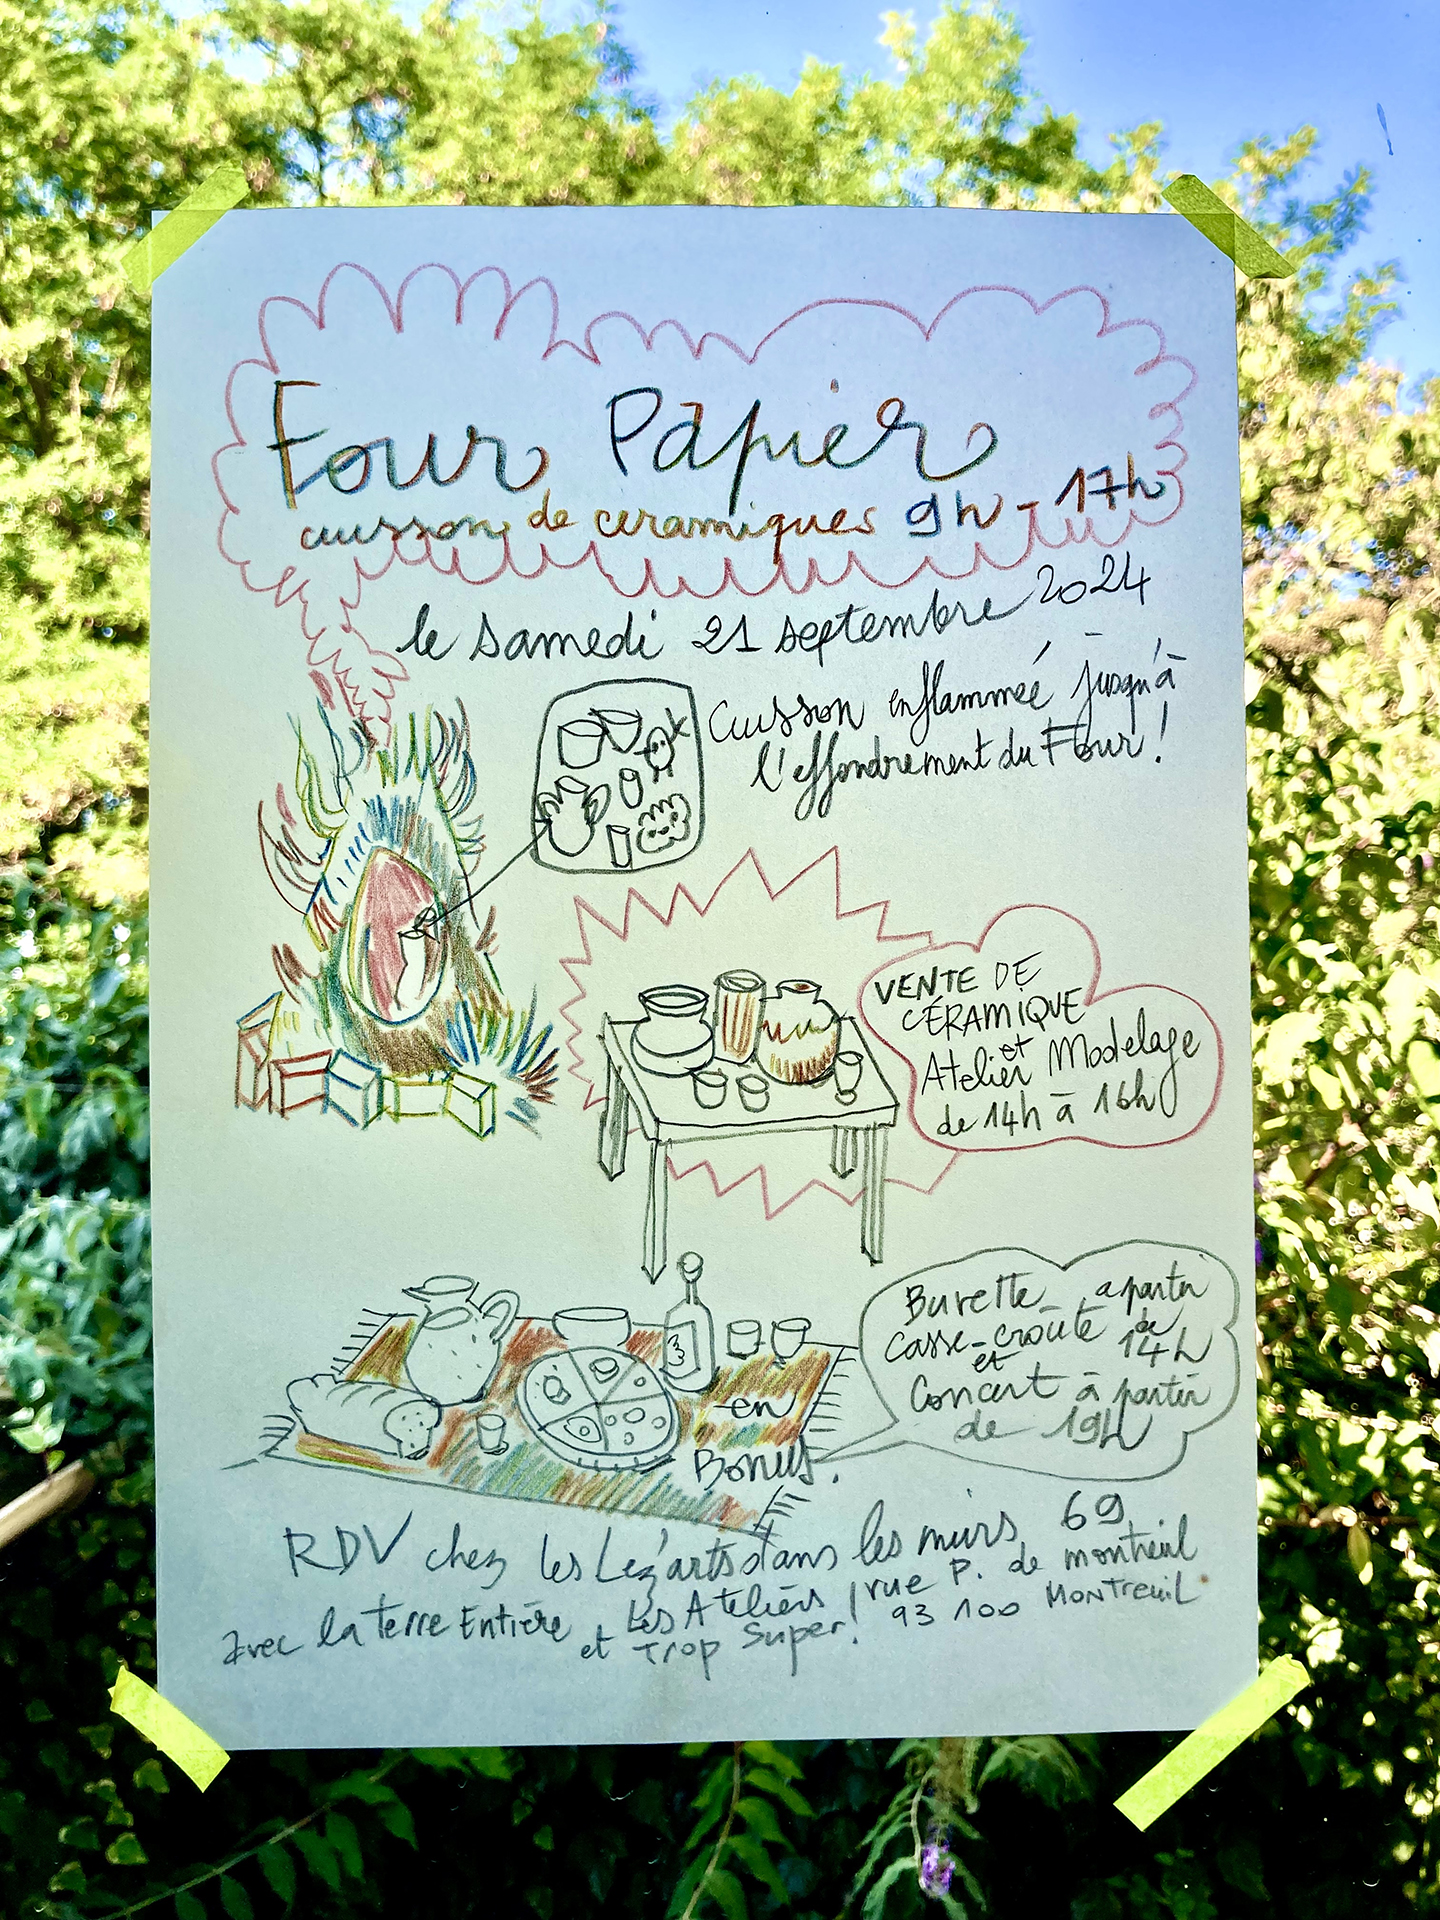 Four Papier
cuisson de céramiques 9h - 17h
le samedi 21 septembre 2024
Cuisson enflammée jusqu'à
l'effondrement du Four !
VENTE DE
CÉRAMIQUE
et
Atelier Modelage
de 14h à 16h
Buvette à partir
casse-croûte de
et 14h
Concert à partir
de 19h
en
Bonus.
RDV chez les Lez'arts dans les murs 69
rue P. de montreuil
93 100 MONTREUIL
avec la terre Entière et Les Ateliers
Trop Super !